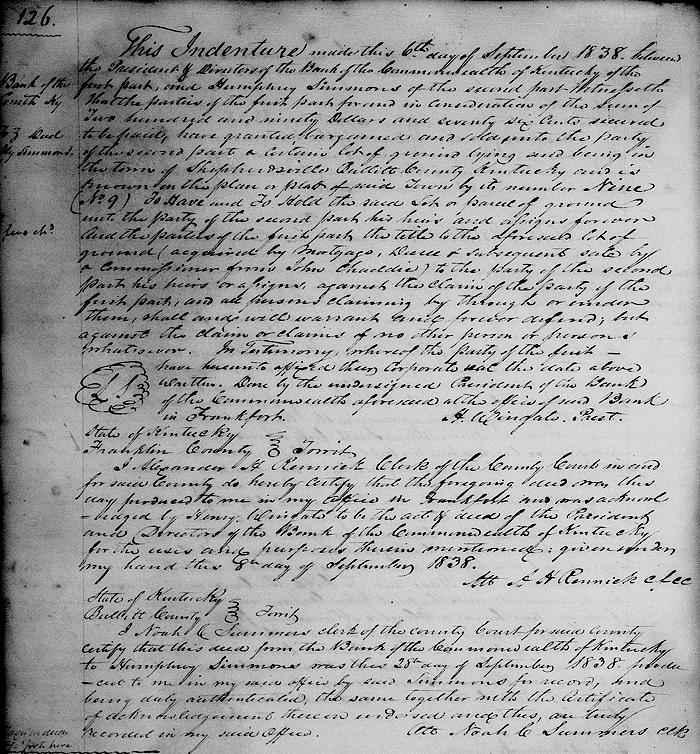 126.
This Indenture made this 6th day of September 1838. between
the President & Directors of the Bank of the Commonwealth of Kentucky of the
first part, and Humphry Simmons of the second part Witnesseth
That the parties of the first part for and in consideration of the Sum of
Two hundred and ninety Dollars and seventy six Cents secured
to be paid, have granted bargained and sold unto the party
of the second part a certain lot of ground lying and being in
the town of Shepherdsville Bullitt County Kentucky and is
known on the plan or plat of said Town by its number Nine
(No 9) To Have and To Hold the said Lot or parcel of ground
unto the party of the second part his heirs and assigns forever
And the parties of the first part the title to the aforesaid lot of
ground (acquired by Mortgage, Decree & subsequent sale by
a Commissioner from John ) to the party of the second
part his heirs or assigns, against the claim of the party of the
first part, and all persons claiming by through or under
them, shall and will warrant and forever defend; but
against the claim or claims of no other person or persons
whatsoever. In Testimony, whereof the party of the first
have hereunto affixed their Corporate seal the date above
Written. Done by the undersigned President of the Bank
of the Commonwealth aforesaid at the office of said Bank
in Frankfort.
H. Wingate. Prest.
Bank of the
Comth Ky
To } Deed
Hy Simmons.
L S
State of Kentucky
Franklin County } Torrit
I Alexander H Rennick Clerk of the County Court in and
for said County do hereby Certify that the foregoing deed was this
day produced to me in my office in Frankfort and was acknowl
-edged by Henry Wingate to be the act & deed of the President
and Directors of the Bank of the Commonwealth of Kentucky
for the uses and purposes therein mentioned: given under
my hand this 8th day of September 1838.
Att A H Rennick c f c c
State of Kentucky
Bullitt County } Torrit
I Noah C Summers clerk of the county Court for said County
certify that this deed from the Bank of the Commonwealth of Kentucky
to Humphry Simmons was this 28th day of September 1838 produ
-ced to me in my said office by said Simmons for record, and
being duly authenticated, the same together with the Certificate
of acknowledgement thereon endorsed and this, are truly
recorded in my said Office. Att Noah C Summers clk